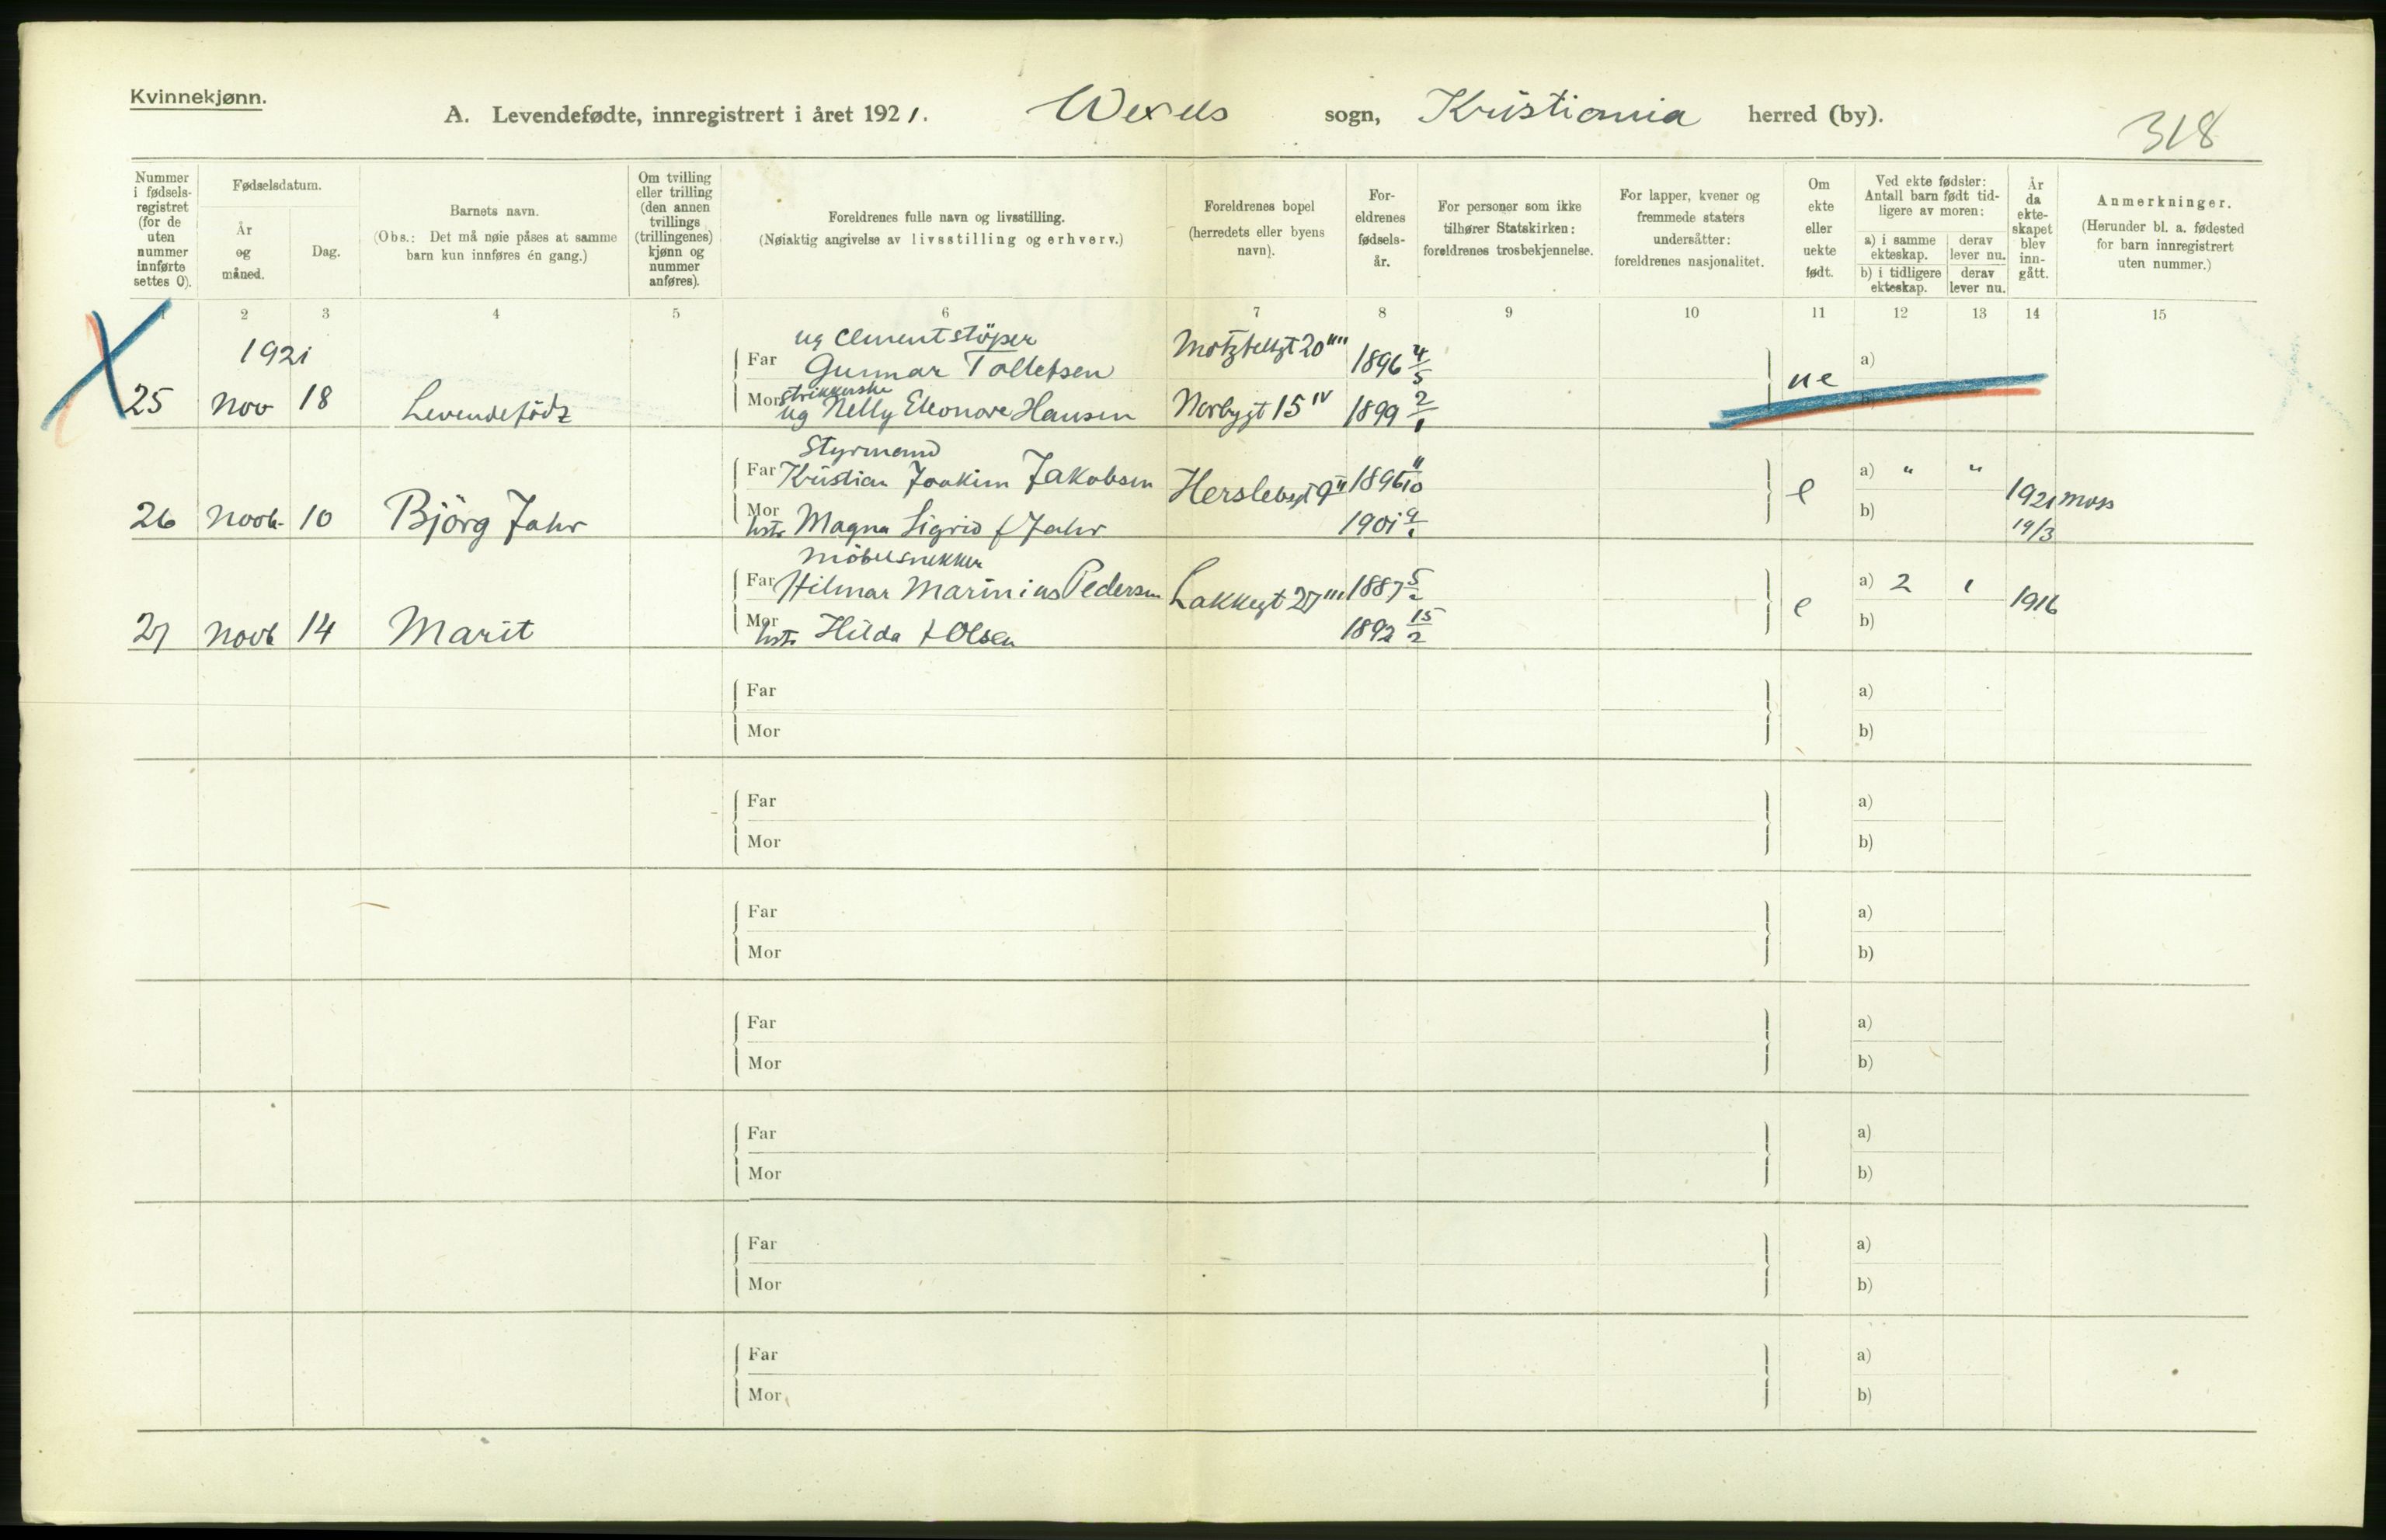 Kvinnekjønn.
A. Levendefødte, innregistrert i året 1921. Wexels sogn, Kristiania herred (by).
318
Nummer i fødselsregistret (for de uten nummer innførte settes 0).
Fødselsdatum.
År og måned.
Dag.
Barnets navn.
(Obs.: Det må nøie påses at samme barn kun innføres én gang.)
Om tvilling eller trilling (den annen tvillings (trillingenes) kjønn og nummer anføres).
Foreldrenes fulle navn og livsstilling.
(Nøiaktig angivelse av livsstilling og erhverv.)
Foreldrenes bopel (herredets eller byens navn).
Foreldrenes fødselsår.
For personer som ikke tilhører Statskirken: foreldrenes trosbekjennelse.
For lapper, kvener og fremmede staters undersåtter: foreldrenes nasjonalitet.
Om ekte eller uekte født.
Ved ekte fødsler: Antall barn født tidligere av moren:
a) i samme ekteskap. derav lever nu.
b) i tidligere ekteskap. derav lever nu.
År da ekteskapet blev inngått.
Anmerkninger.
(Herunder bl. a. fødested for barn innregistrert uten nummer.)
1 2 3 4 5 6 7 8 9 10 11 12 13 14 15
1921
ug cementstöper
Far Gunnar Tollefsen Motzfeltgt 20"" 1896 4/5 a)
strikkerske
25 Nov 18 Levendefödt Mor ug Nelly Eleonore Hansen Norbygt 15 IV 1899 2/1 ue
Styrmand
Far Kristian Joakim Jakobsen Herslebsgt 9 II 1896 11/10 a) " "
26 Novb. 10 Björg Jahr Mor hstr Magna Sigrid f Jahr 1901 9/1 e b) 1921 19/3 Moss
Möbelsnekker
Far Hilmar Marinius Pedersen Lakkegt 27 III 1887 5/2 a) 2 1
27 Novb 14 Marit Mor hstr Hilda f Olsen 1892 15/2 e b) 1916
Far a)
Mor b)
Far a)
Mor b)
Far a)
Mor b)
Far a)
Mor b)
Far a)
Mor b)
Far a)
Mor b)
Far a)
Mor b)